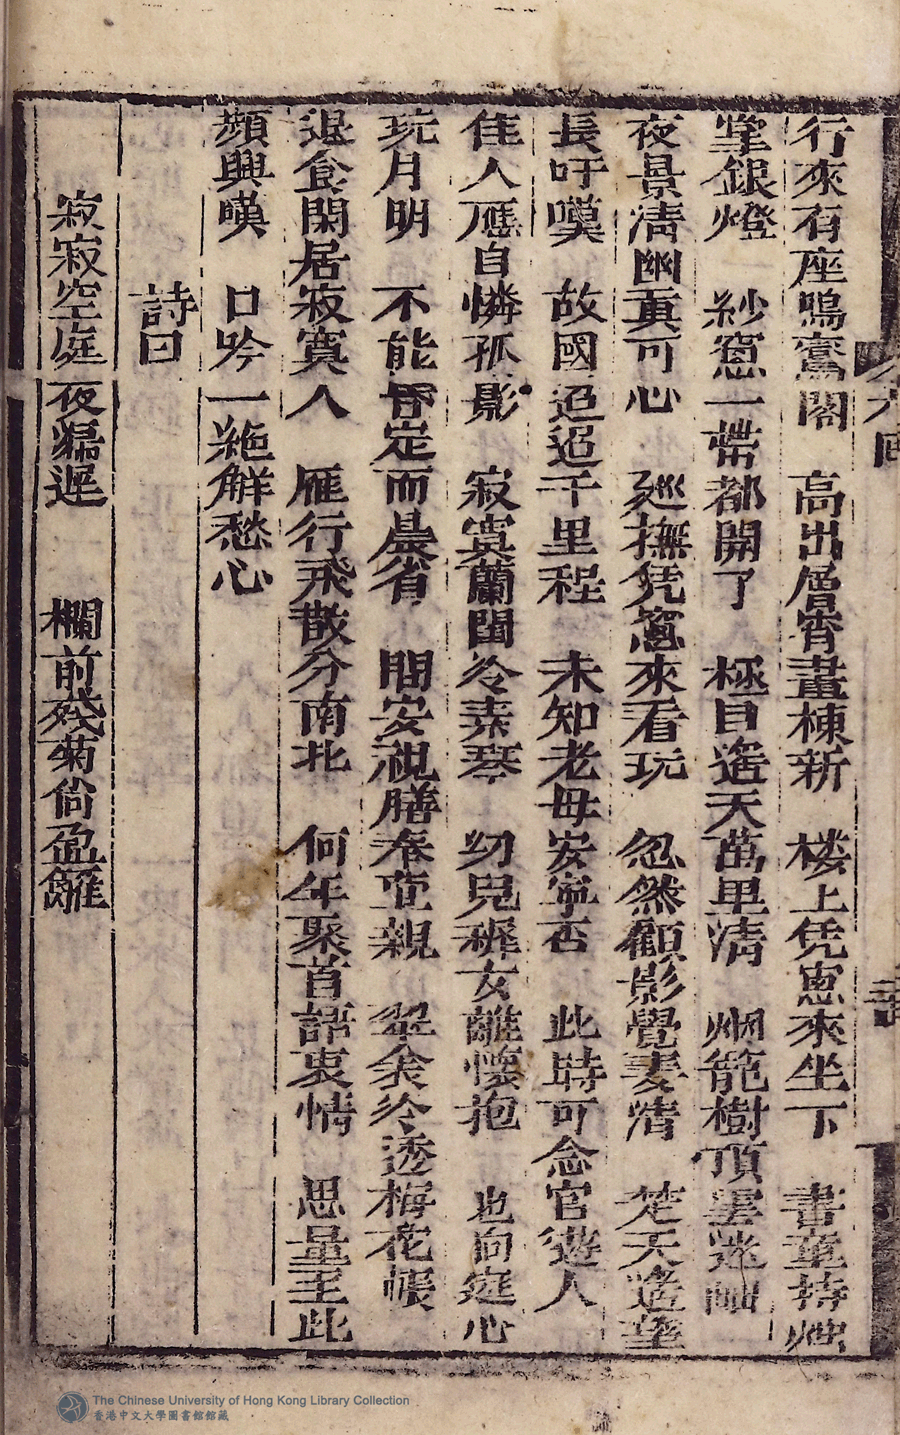 行來有座鳴鸞閣　高出層霄畫棟新　楼上凭窓來坐下　書童持燭
堂銀燈　紗窓一帶都開了　極目遙天萬里清　烟籠樹頂雲迷岫
夜景清幽真可心　廵撫凭窓來看玩　忽然顧影覺妻清　楚天遙望
長吁嘆　故國迢迢千里程　未知老母安寧否　此時可念官遊人
佳人應自憐孤影　寂寞蘭閨冷素琴　幼兒穉女離懷抱　也向庭心
玩月明　不能昏定而晨省　問安視膳奉萱親　翠衾冷透梅花帳
退食閑居寂寞人　雁行飛散分南北　何年聚首語衷情　思量至此
頻興嘆　口吟一絶解愁心
詩曰
寂寂空庭夜漏遲　欄前殘菊尙盈籬
The Chinese University of Hong Kong Library Collection
香港中文大學圖書館館藏